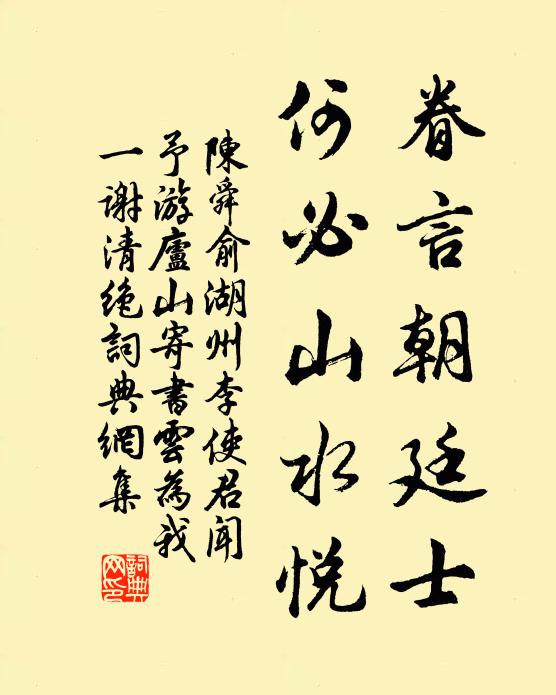 眷言朝廷士
何必山水悦
陳舜俞湖州李使君聞
予游廬山寄書雲為我
一谢清绝詞典網集
詞典
网印